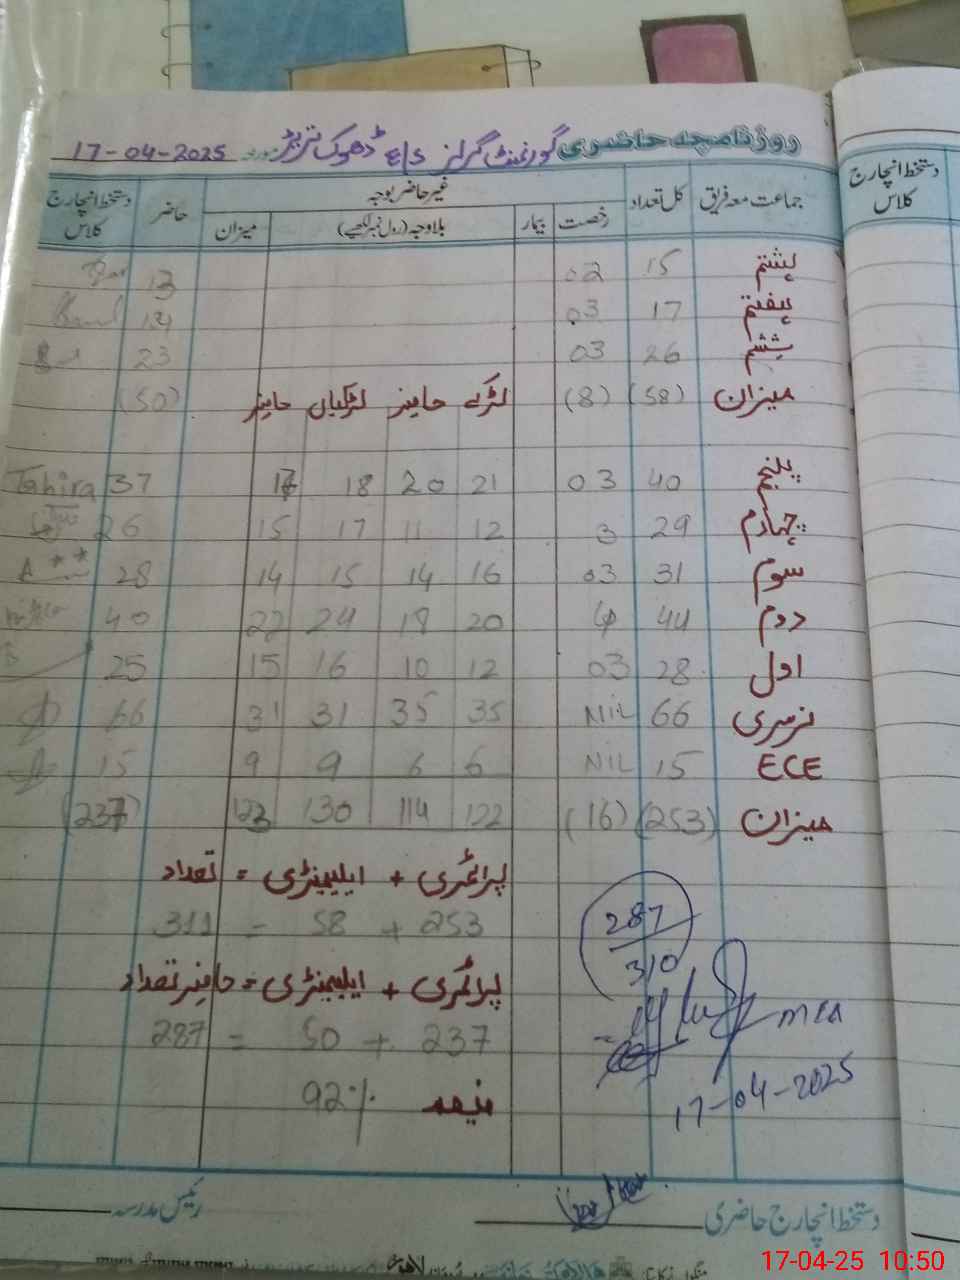 روزنامچہ حاضری گورنمنٹ گرلز E/S ڈھوک تربڑ مورخہ 17-04-2025
جماعت معہ فریق کل تعداد غیر حاضر بوجہ حاضر دستخط انچارج کلاس
رخصت بیمار بلاوجہ (رول نمبر لکھیے) میزان
دستخط انچارج کلاس
ہشتم 15 02 13
ہفتم 17 03 14
ششم 26 03 23
میزان (58) (8) لڑکے حاضر لڑکیاں حاضر (50)
پنجم 40 03 21 20 18 17 37 Tahira
چہارم 29 3 12 11 17 15 26
سوم 31 03 16 14 15 14 28
دوم 44 4 20 18 24 22 40
اول 28 03 12 10 16 15 25
نرسری 66 NIL 35 35 31 31 66
ECE 15 NIL 6 6 9 9 15
میزان (253) (16) 122 114 130 123 (237)
پرائمری + ایلیمنٹری = تعداد
253 + 58 = 311
پرائمری + ایلیمنٹری = حاضر تعداد
237 + 50 = 287
فیصد 92%
287
310
MEA
17-04-2025
دستخط انچارج حاضری رئیس مدرسہ
17-04-25 10:50